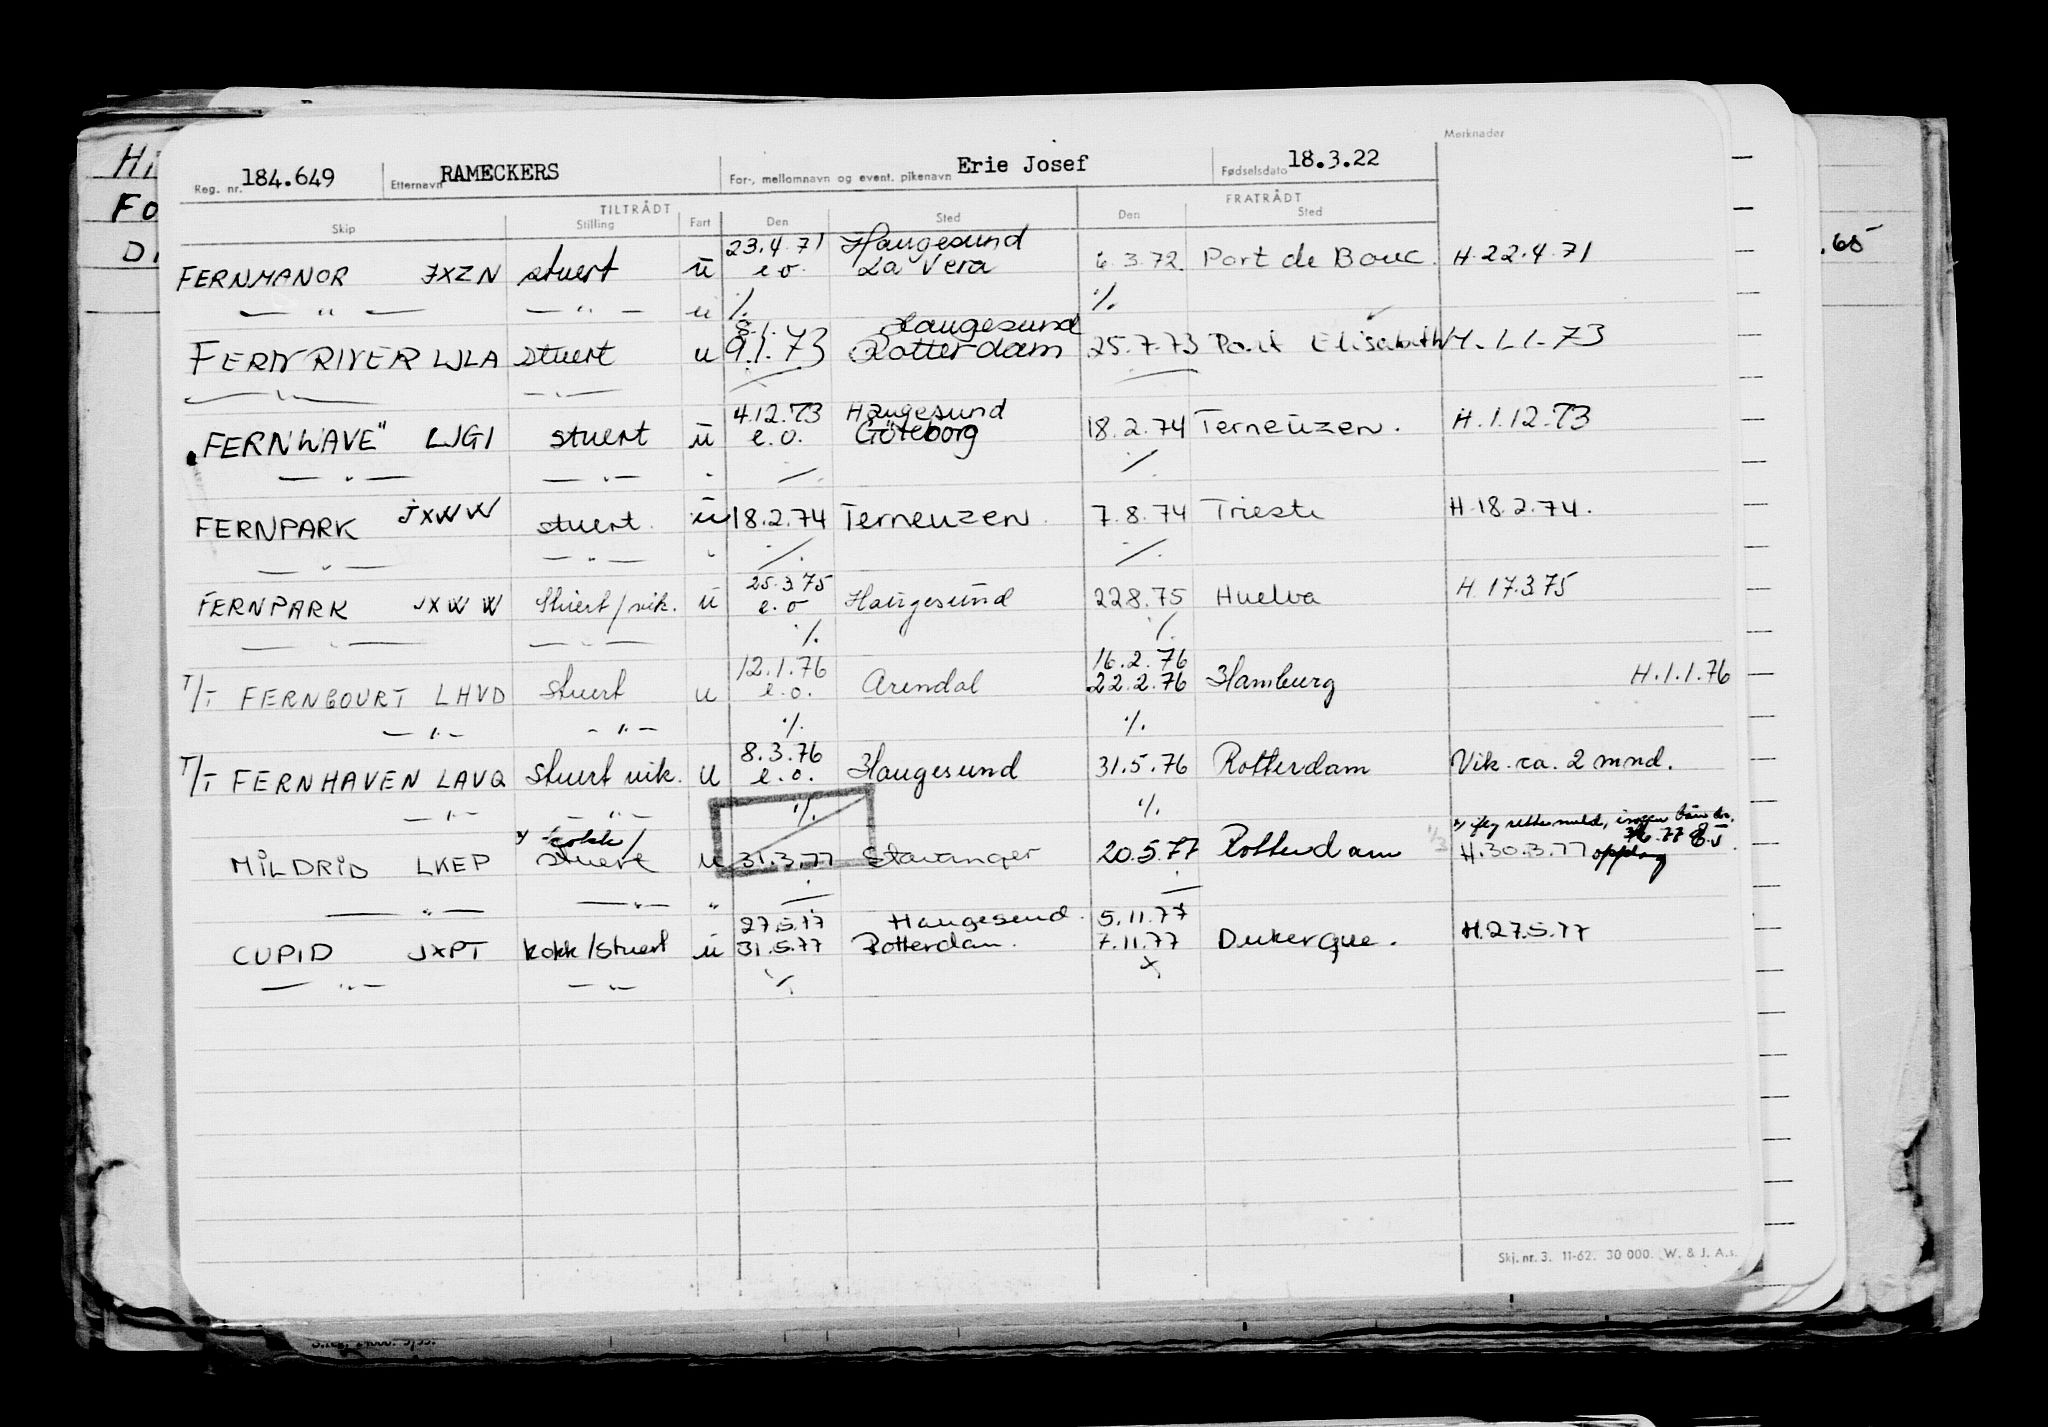 Reg. nr. 184.649 Etternavn RAMECKERS For-, mellomnavn og event. pikenavn Erie Josef Fødselsdato 18.3.22 Merknader
TILTRÅDT FRATRÅDT
Skip Stilling Fart Den Sted Den Sted
23.4.71 Haugesund
FERNMANOR JXZN stuert u e.o. La Vera 6.3.72 Port de Bouc. H.22.4.71
— " — — " — u ·/. ·/.
8.1. Haugesund
FERNRIVER LJLA stuert u 9.1.73 Rotterdam 25.7.73 Port Elisabeth H.1.1.73
— " — — " —
4.12.73 Haugesund
"FERNWAVE" LJGI stuert u e.o. Göteborg 18.2.74 Terneuzen. H.1.12.73
— " — — " — " ·/. ·/.
FERNPARK JXWW stuert. u 18.2.74 Terneuzen. 7.8.74 Trieste H.18.2.74.
— " — — " — " ·/. ·/.
25.3.75
FERNPARK JXWW Stuert/vik. u e.o Haugesund 22.8.75 Huelva H.17.3.75
— " — — " — ·/. ·/.
12.1.76 16.2.76
T/T FERNCOURT LHVD stuert u e.o. Arendal 22.2.76 Hamburg H.1.1.76
— " — — " — ·/. ·/.
8.3.76
T/T FERNHAVEN LAVQ stuert vik. u e.o. Haugesund 31.5.76 Rotterdam Vik. ca. 2 mnd.
— " — — " — ·/. ·/.
kokk/
MILDRID LKEP stuert u 31.3.77 Stavanger 20.5.77 Rotterdam H.30.3.77 opplag
— " — — " — " ·/. ·/.
27.5.77 Haugesund. 5.11.77
CUPID JXPT kokk/stuert u 31.5.77 Rotterdam. 7.11.77 Dukerque. H.27.5.77
— " — — " — ·/. ·/.
Skj. nr. 3. 11-62. 30 000. W. & J. A.s.
Hi
Fo
D
.65